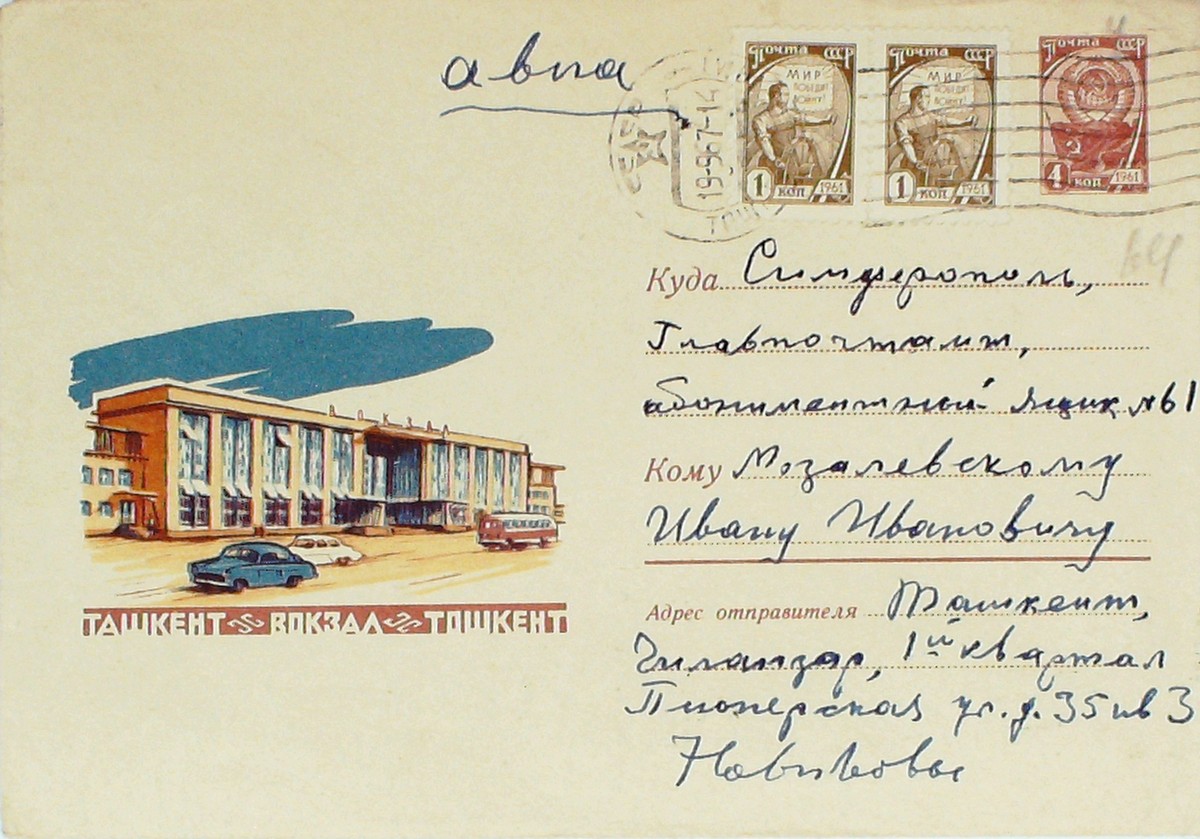 авиа
ПОЧТА СССР
МИР
ПОБЕДИТ
ВОЙНУ!
1 КОП 1961
ПОЧТА СССР
МИР
ПОБЕДИТ
ВОЙНУ!
1 КОП 1961
ПОЧТА СССР
4 КОП 1961
19-967-14
Куда Симферополь,
Главпочтамт,
абониментный ящик №61
Кому Мозалевскому
Ивану Ивановичу
ВОКЗАЛ
ТАШКЕНТ ВОКЗАЛ ТОШКЕНТ
Адрес отправителя Ташкент,
Чиланзар, 1ый квартал
Пионерская ул. д. 35 кв 3
Новиковы